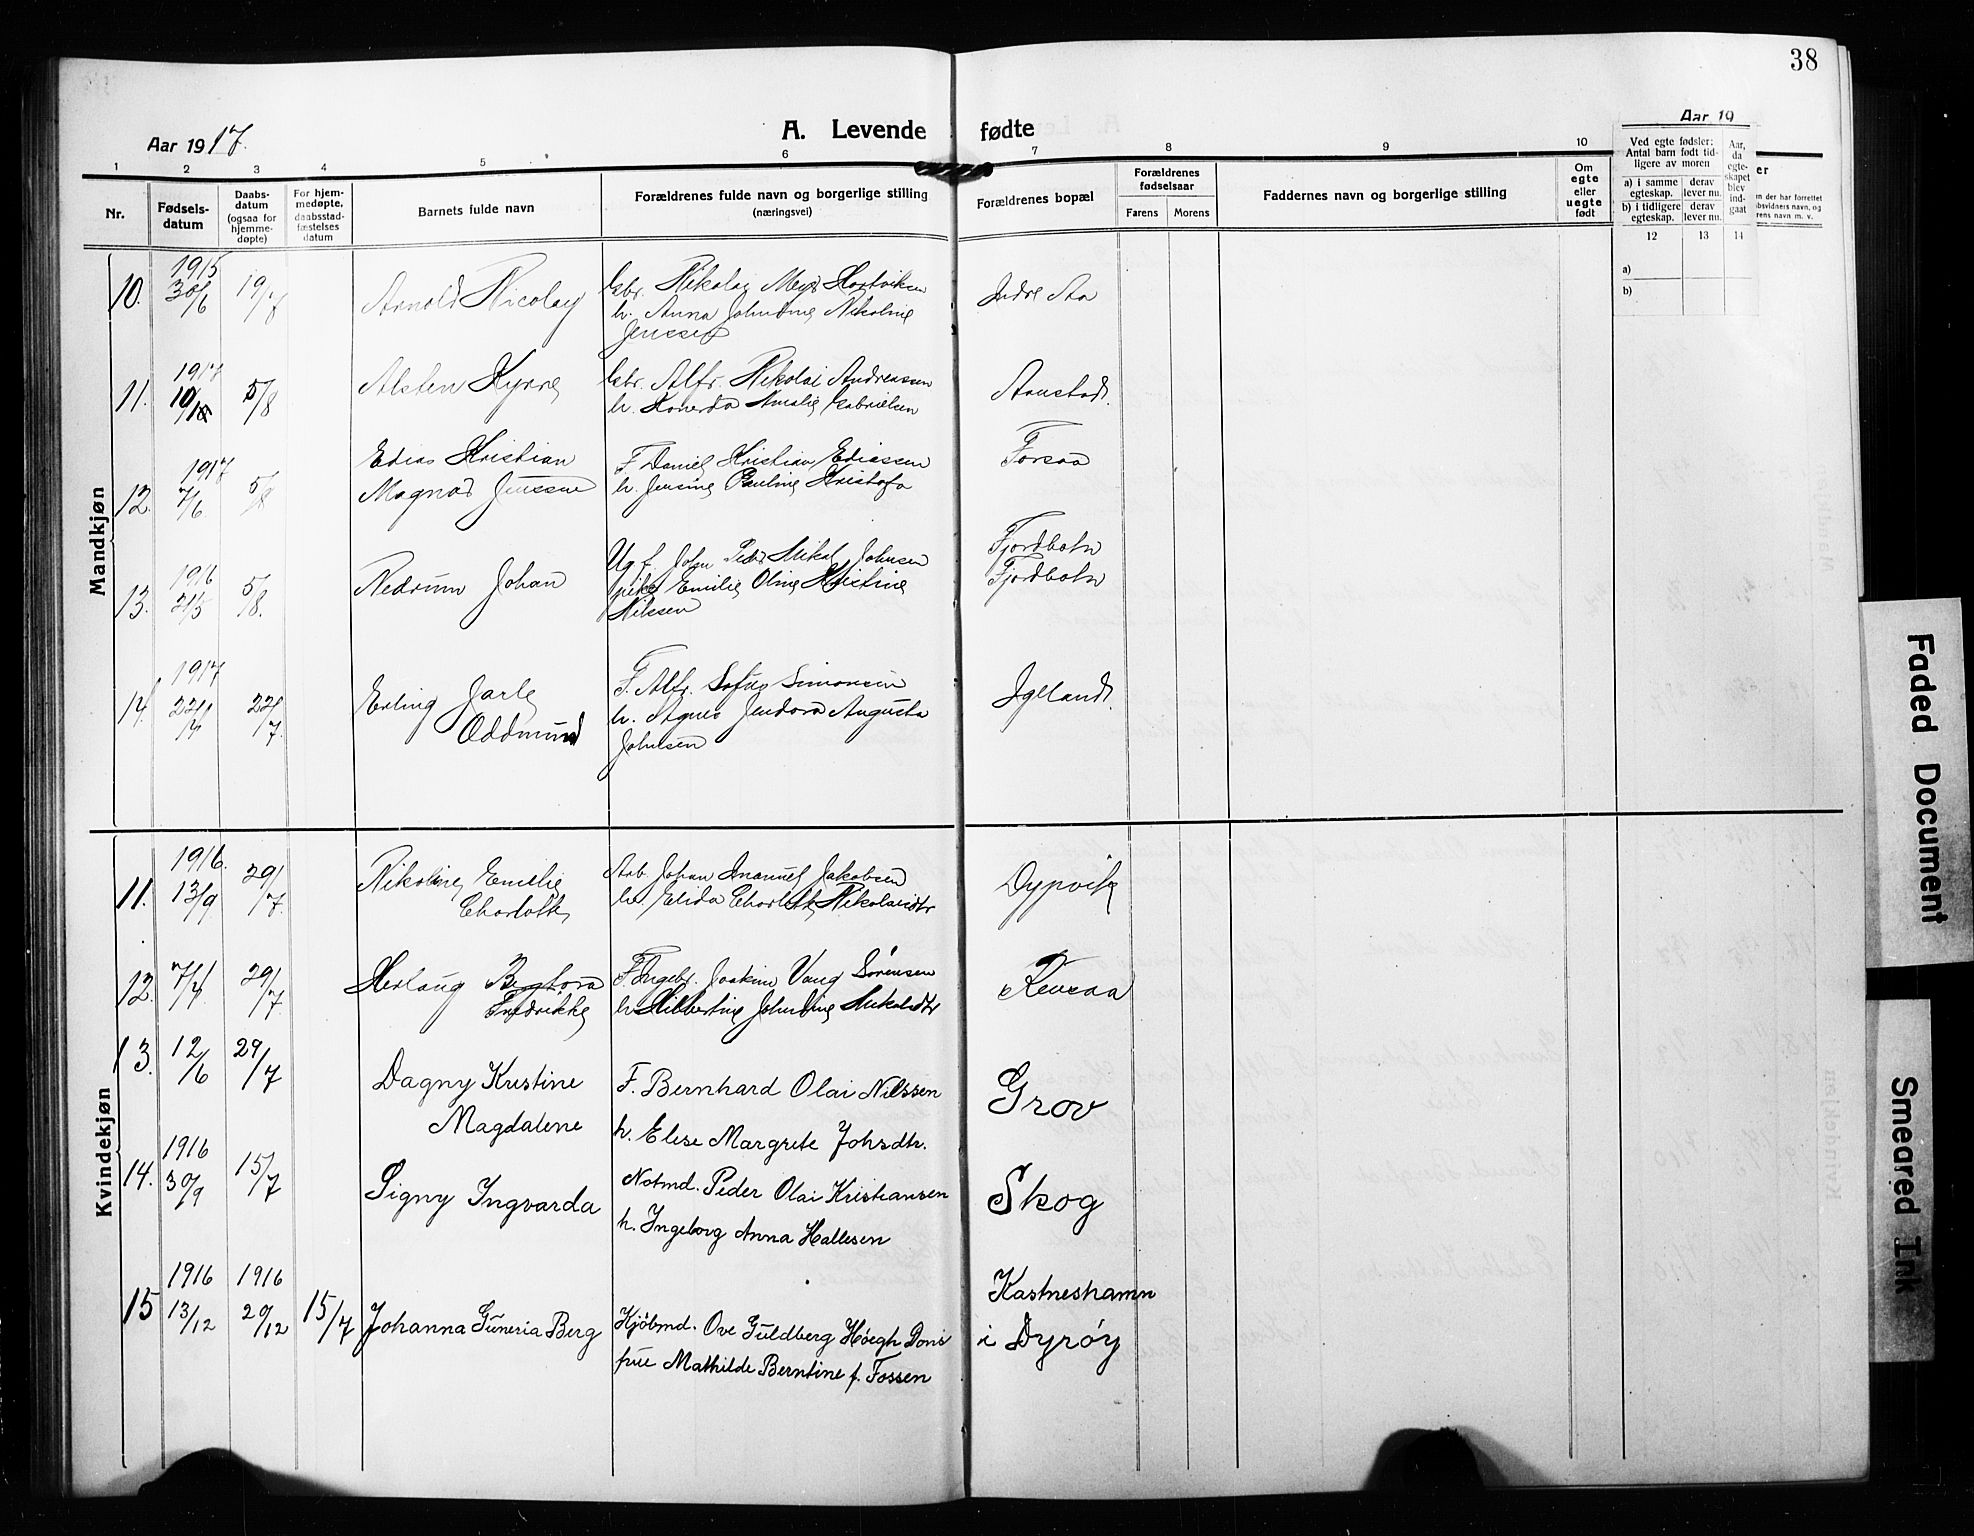 38
Aar 1917.
A. Levende fødte
Aar 19
1 2 3 4 5 6 7 8 9 10
Nr.
Fødsels-
datum
Daabs-
datum
(ogsaa for
hjemme-
døpte)
For hjem-
medøpte,
daabsstad-
fæstelses
datum
Barnets fulde navn
Forældrenes fulde navn og borgerlige stilling
(næringsvei)
Forældrenes bopæl
Forældrenes
fødselsaar
Farens Morens
Faddernes navn og borgerlige stilling
Om
egte
eller
uegte
født
Ved egte fødsler:
Antal barn født tid-
ligere av moren
a) i samme
egteskap.
derav
lever nu.
b) i tidligere
egteskap.
derav
lever nu.
Aar,
da
egte-
skapet
blev
ind-
gaat
12 13 14
a)
b)
Mandkjøn
10. 1915 30/6 19/8 Arnold Nicolay
Gbr. Nikolay Meyer Hartviksen
h. Anna Johndine Nikoline
Jenssen
Indre Aa
11. 1917 5/8 Alsten Kyrre
Gbr. Alfr. Nikolai Andreassen
h. Amalie Gabrielsen
Aanstad.
12. 1917 7/6. 5/8 Edias Kristian
Magnad Jenssen
F. Daniel Kristian Ediassen
h. Jensine Pauline Kristofa
Forsaa
13. 1916 21/5 5/8. Nedrum Johan
Ug f. John Peder Mikal Johnsen
pike Emilie Oline Kristine
Nilssen
Fjordbotn
Fjordbotn
14. 1917 22/4 22/7. Erling Jarle
Oddmund
F. Alfr. Sofus Simonsen
h. Agnes Jendora Augusta
Johnsen
Igeland.
Kvindekjøn
11. 1916. 13/9 29/7. Nikoline Emelie
Charlotte
Arb. Johan Imanuel Jakobsen
h. Elida Charlotte Nikolaidtr
Dypvik
12. 7/4 29/7. Herlaug Bergtora
Fredrikke
F. Ingebr. Joakim Vang Sørensen
h. Hilbertine Johndine Mikalsdtr
Revsaa
13. 12/6 29/7 Dagny Kristine
Magdalene
F. Bernhard Olai Nilssen
h. Elise Margrete Johsdtr.
Grov
14. 1916 30/9 15/7 Signy Ingvarda
Notmd. Peder Olai Kristiansen
h. Ingeborg Anna Hallesen
Skog
15 1916 13/12 1916 29/12 15/7 Johanna Guneria Berg
Kjøbmd. Ove Guldberg Høegh Dons
frue Mathilde Berntine f. Fossen
Kastneshamn
i Dyrøy
Faded Document
Smeared Ink